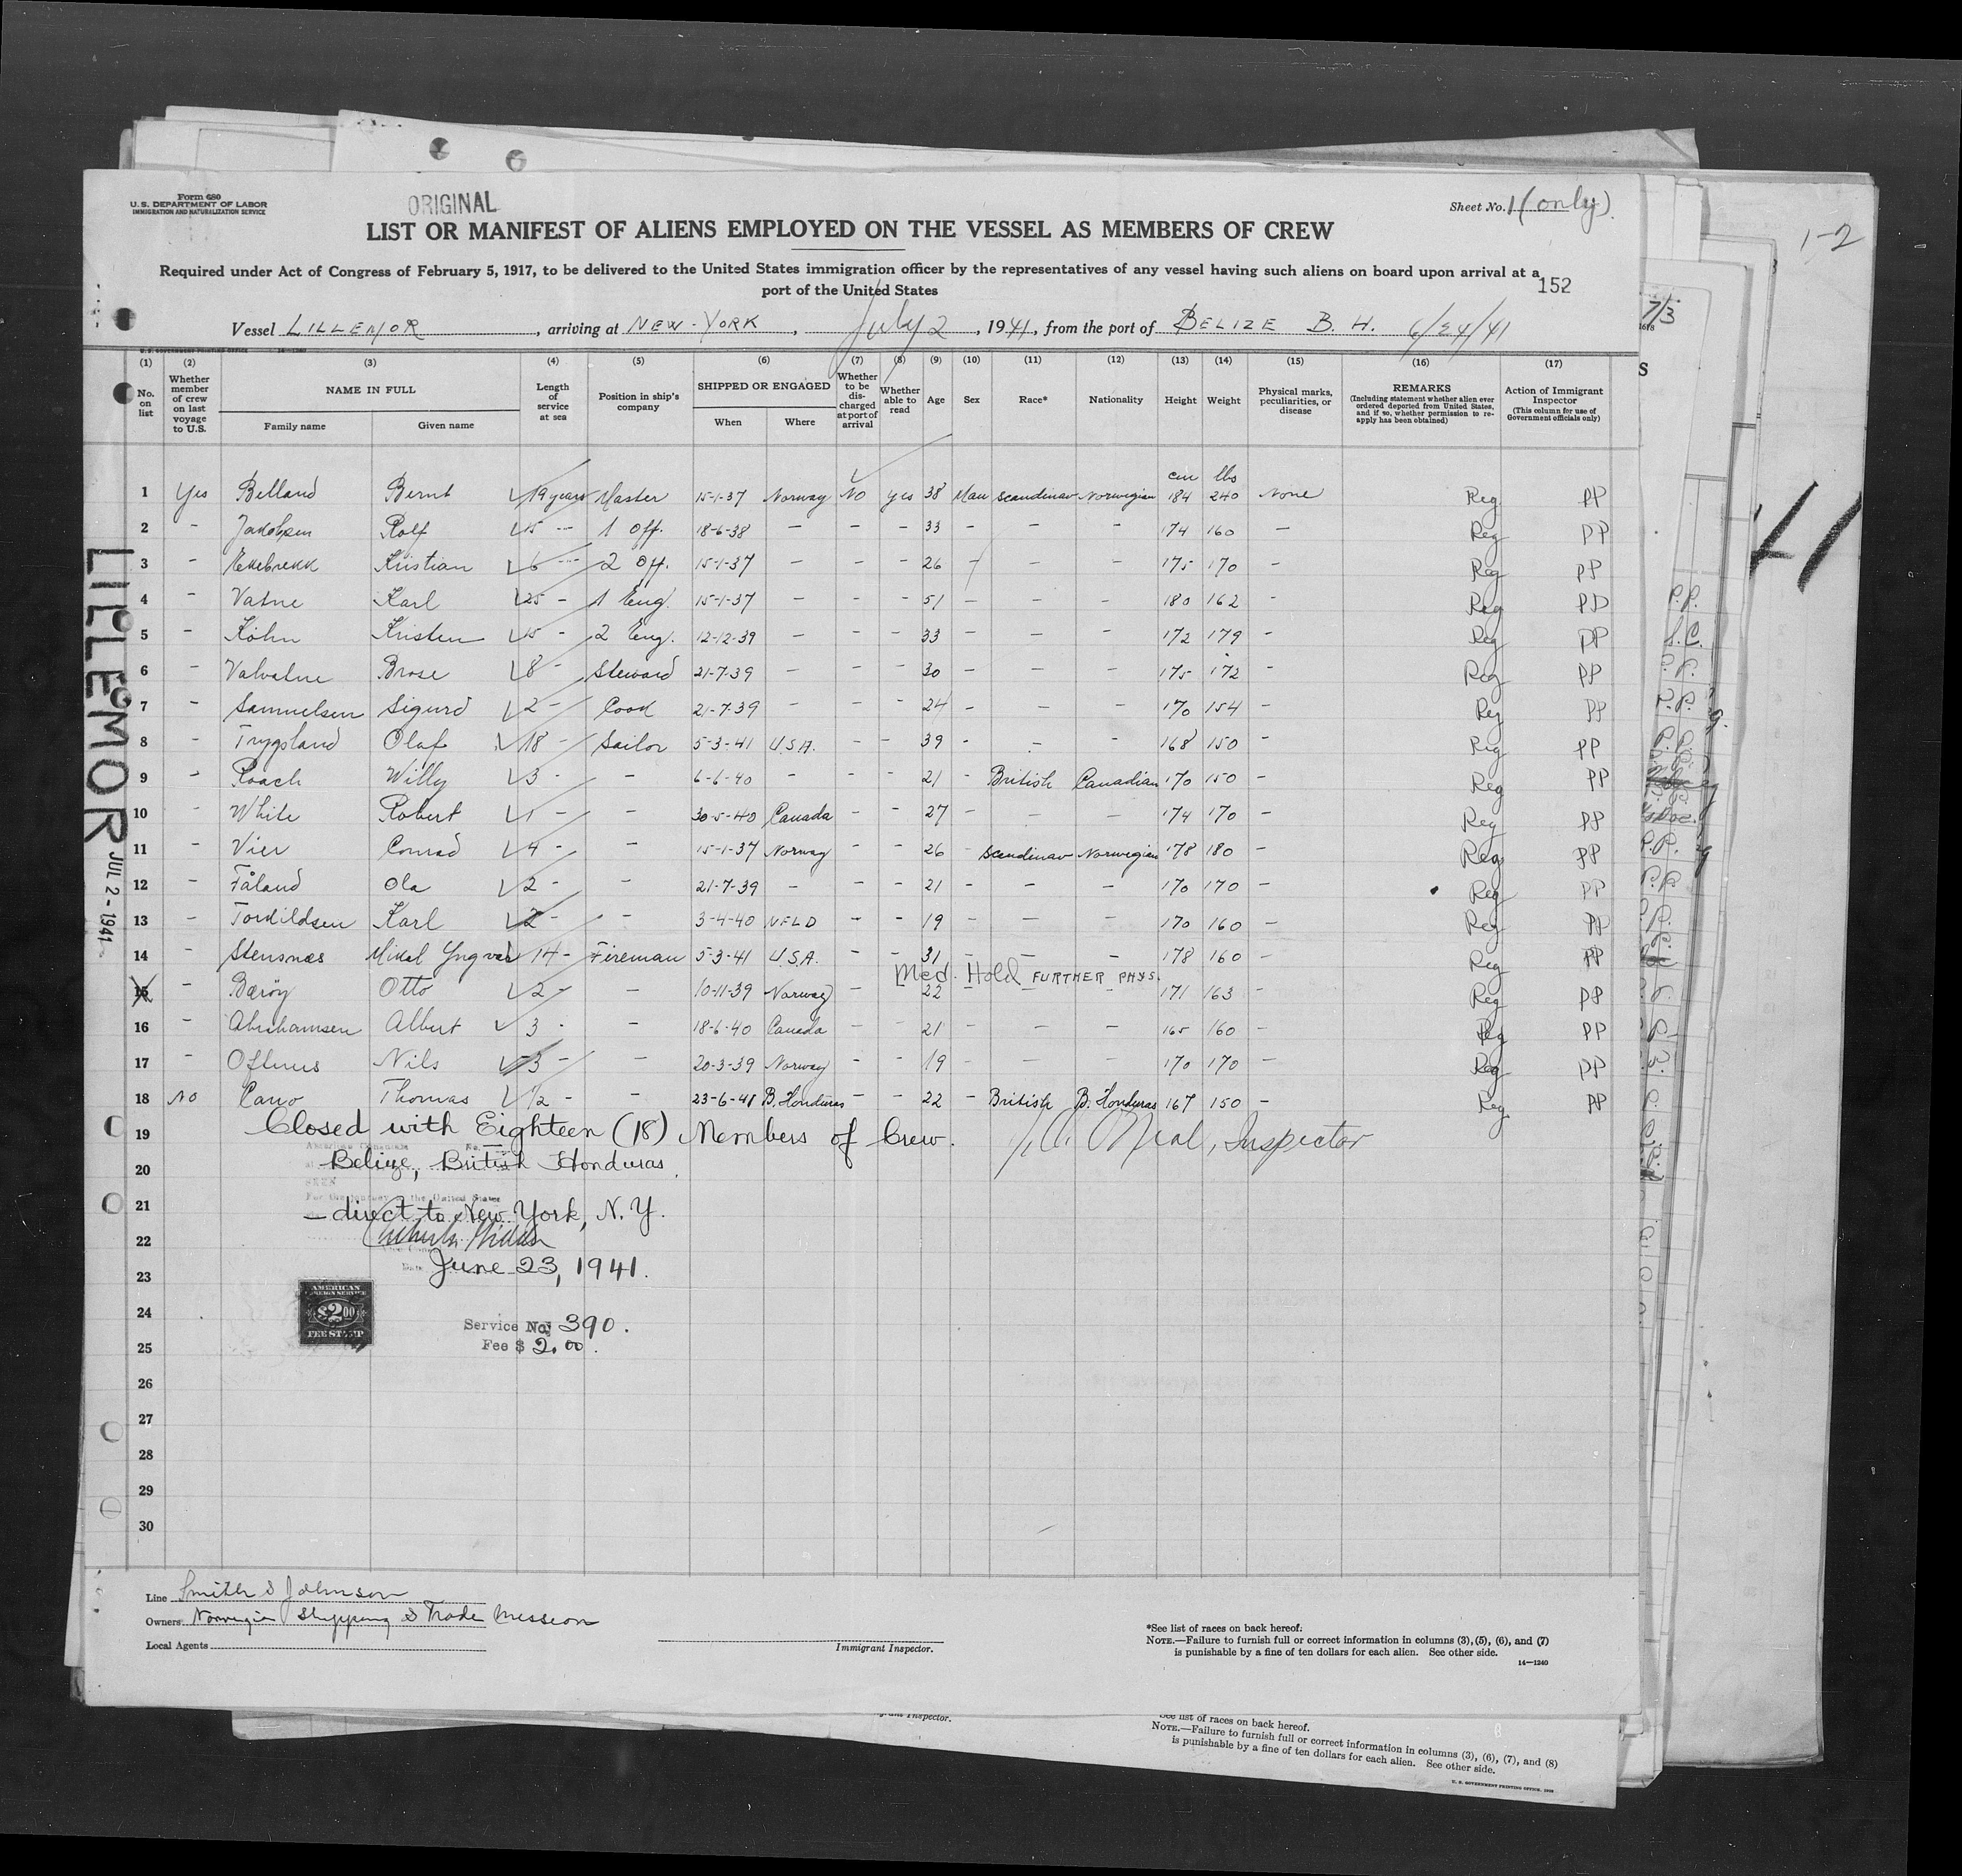 Form 680
U.S. DEPARTMENT OF LABOR
IMMIGRATION AND NATURALIZATION SERVICE
ORIGINAL
Sheet No. 1 (only)
1-2
LIST OR MANIFEST OF ALIENS EMPLOYED ON THE VESSEL AS MEMBERS OF CREW
Required under Act of Congress of February 5, 1917, to be delivered to the United States immigration officer by the representatives of any vessel having such aliens on board upon arrival at a
port of the United States
152
7/3
Vessel LILLEMOR, arriving at NEW-YORK, July 2, 1941, from the port of BELIZE B. H. 6/24/41
(1) (2) (3) (4) (5) (6) (7) (8) (9) (10) (11) (12) (13) (14) (15) (16) (17)
No. on list
Whether member of crew on last voyage to U.S.
NAME IN FULL
Family name
Given name
Length of service at sea
Position in ship's company
SHIPPED OR ENGAGED
When
Where
Whether to be discharged at port of arrival
Whether able to read
Age
Sex
Race*
Nationality
Height
Weight
Physical marks, peculiarities, or disease
REMARKS
(Including statement whether alien ever ordered deported from United States, and if so, whether permission to reapply has been obtained)
Action of Immigrant Inspector
(This column for use of Government officials only)
cm lbs
1 Yes Belland Bernt 19 years Master 15-1-37 Norway No yes 38 Man Scandinav Norwegian 184 240 None Reg PP
2 - Jakobsen Rolf 15 --- 1 Off. 18-6-38 - - - 33 - - - 174 160 - Reg PP
3 - Kristian 6 --- 2 Off. 15-1-37 - - - 26 - - - 175 170 - Reg PP
4 - Vatne Karl 25 - 1 Eng. 15-1-37 - - - 51 - - - 180 162 - Reg PP
5 - Köhn Kristen 15 - 2 Eng. 12-12-39 - - - 33 - - - 172 179 - Reg PP
6 - Valvatne Brose 8 - Steward 21-7-39 - - - 30 - - - 175 172 - Reg PP
7 - Samuelsen Sigurd 2 - Cook 21-7-39 - - - 24 - - - 170 154 - Reg PP
8 - Trygsland Olaf 18 - Sailor 5-3-41 U.S.A. - - 39 - - - 168 150 - Reg PP
9 - Roach Willy 3 - - 6-6-40 - - - 21 - British Canadian 170 150 - Reg PP
10 - White Robert 1 - - 30-5-40 Canada - - 27 - - - 174 170 - Reg PP
11 - Vier Conrad 4 - - 15-1-37 Norway - - 26 - Scandinav Norwegian 178 180 - Reg PP
12 - Fåland Ola 2 - - 21-7-39 - - - 21 - - - 170 170 - Reg PP
13 - Torkildsen Karl 2 - - 3-4-40 NFLD - - 19 - - - 170 160 - Reg PP
14 - Stensnæs Mikal Yngvar 14 - Fireman 5-3-41 U.S.A. - - 31 - - - 178 160 - Reg PP
Med. Hold FURTHER PHYS.
15 - Barøy Otto 2 - - 10-11-39 Norway - 22 - - 171 163 - Reg PP
16 - Abrahamsen Albert 3 - - 18-6-40 Canada - - 21 - - - 165 160 - Reg PP
17 - Nils 3 - - 20-3-39 Norway - - 19 - - - 170 170 - Reg PP
18 No Thomas 1/2 - - 23-6-41 B. Honduras - - 22 - British B. Honduras 167 150 - Reg PP
19 Closed with Eighteen (18) Members of Crew. O'Neal, Inspector
20 Belize, British Honduras.
SEEN
For the journey to the United States
21 - direct to New York, N.Y.
22
23 Date June 23, 1941.
AMERICAN FOREIGN SERVICE
$2.00
FEE STAMP
24 Service No. 390.
25 Fee $ 2.00.
26
27
28
29
30
LILLEMOR JUL 2 - 1941
Line Smith & Johnson
Owners Norwegian Shipping & Trade Mission
Local Agents
Immigrant Inspector.
*See list of races on back hereof.
NOTE.—Failure to furnish full or correct information in columns (3), (5), (6), and (7)
is punishable by a fine of ten dollars for each alien. See other side.
14—1240
Inspector.
See list of races on back hereof.
NOTE.—Failure to furnish full or correct information in columns (3), (6), (7), and (8)
is punishable by a fine of ten dollars for each alien. See other side.
U. S. GOVERNMENT PRINTING OFFICE